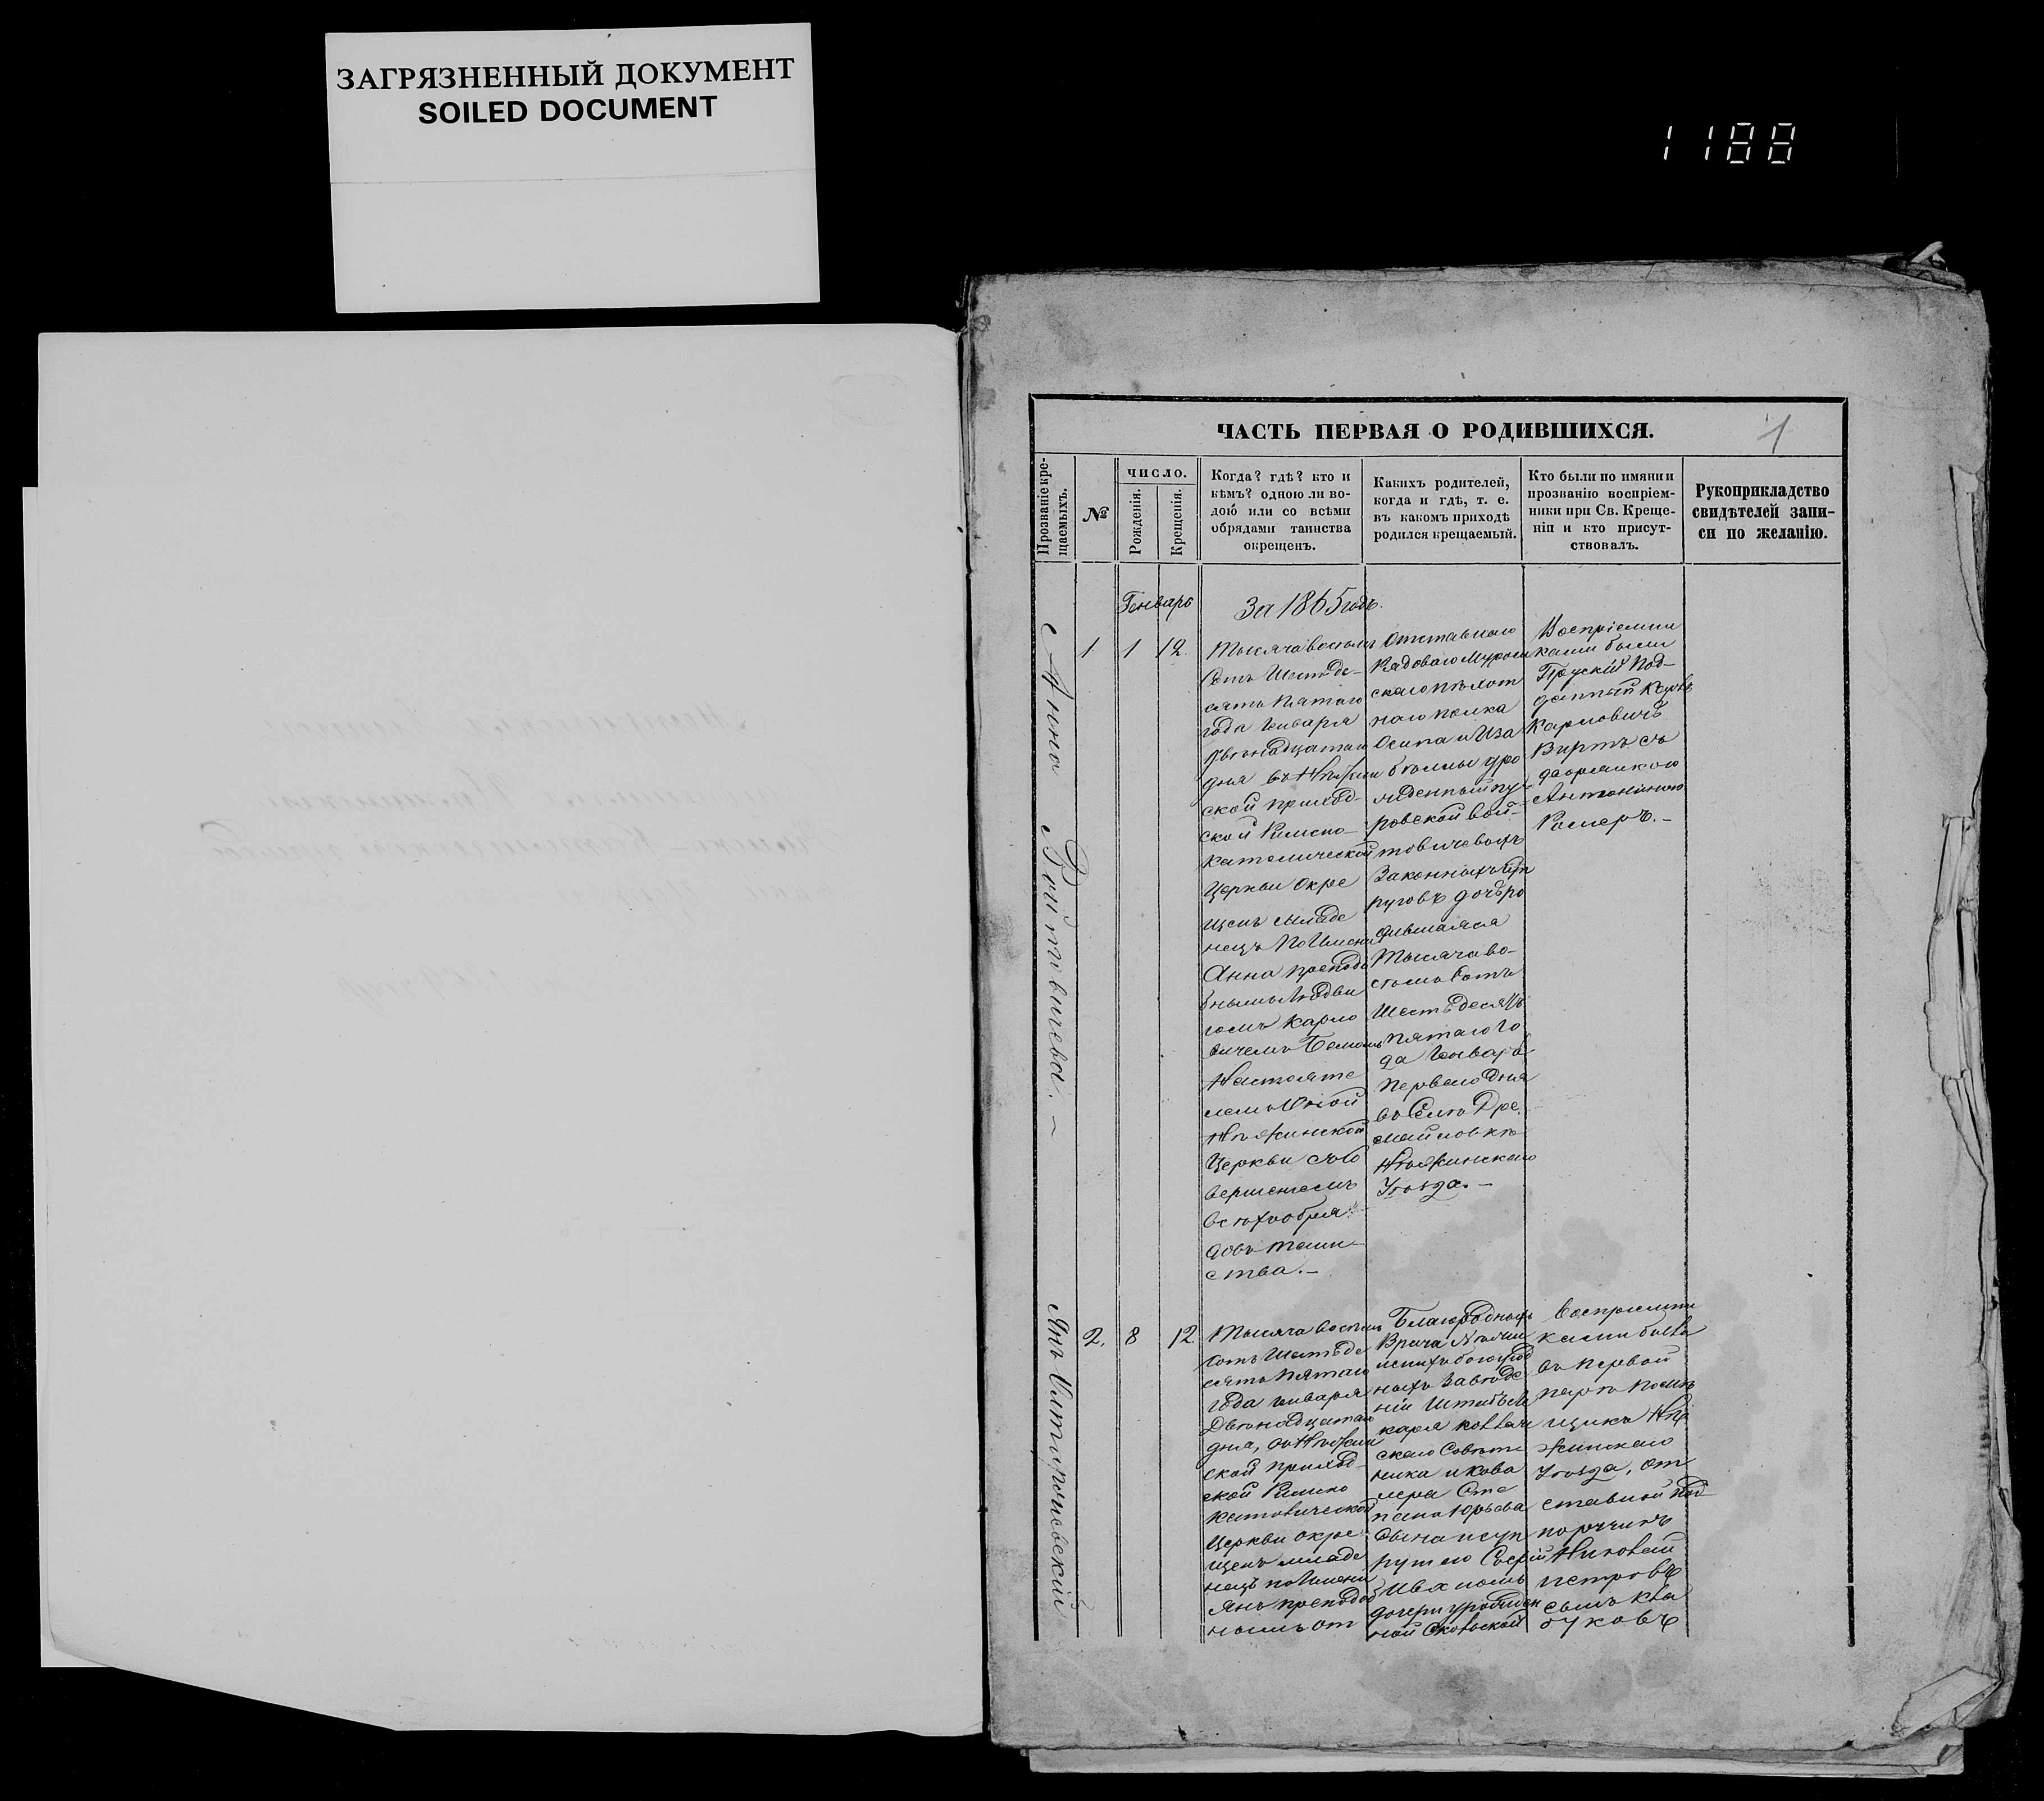 ЗАГРЯЗНЕННЫЙ ДОКУМЕНТ
SOILED DOCUMENT
1188
ЧАСТЬ ПЕРВАЯ О РОДИВШИХСЯ.
1
Прозваніе кре-
щаемыхъ.
№
ЧИСЛО.
Рожденія.
Крещенія.
Когда? гдѣ? кто и
кѣмъ? одною ли во-
дою или со всѣми
обрядами таинства
окрещенъ.
Какихъ родителей,
когда и гдѣ, т. е.
въ какомъ приходѣ
родился крещаемый.
Кто были по имяни и
прозванію воспріем-
ники при Св. Креще-
ніи и кто присут-
ствовалъ.
Рукоприкладство
свидѣтелей запи-
си по желанію.
Генварь
За 1865 годъ.
Анна Войтовичева. —
1
1
12.
Тысяча восемь
сотъ Шестьде-
сятъ Пятаго
года Января
двѣнадцатаго
дня въ Нѣжин
ской приход-
ской Римско-
Католической
Церкви Окре
щенъ Младе
нецъ По Имени
Анна преподо
бнымъ
гомъ Карло
вичемъ
Настояте
лемъ
Нѣжинской
Церкви со
вершеніемъ
всѣхъ обря
довъ таин-
ства. —
Отставнаго
Рядоваго Муром
скаго пѣхот
наго полка
Осипа и Иза
беллы уро
жденной
ровской Вой-
товичевыхъ
Законныхъ Суп
руговъ дочь ро
дившаяся
Тысяча во-
семь сотъ
Шестьдесятъ
пятаго Го
да Января
Перваго дня
въ Селѣ Дре
майловкѣ
Нѣжинскаго
Уѣзда. —
Воспріемни
ками были
Прускій Под-
данный Карлъ
Карловичъ
Виртъ съ
дворянкою
Антониною
Ромеръ. —
2.
8
12.
Тысяча восемь
сотъ Шестьде
сятъ Пятаго
года января
Двѣнадцатаго
дня, въ Нѣжин
ской приход-
ской Римско
Католической
Церкви окре
щенъ младе
нецъ по Имени
Янъ преподоб
нымъ от
Благородныхъ
Врача
богоугод
ныхъ Заведе
ній Штабъ Ле
каря Коллеж
скаго Совѣтни
ника и Кава
лера Сте
пана Юрьева
Сына и суп
руги его Софіи
дочери урожден
ной
Воспріемни
ками были
въ первой
парѣ помѣ
щикъ Нѣ
жинскаго
Уѣзда, от
ставной Под-
поручикъ
Николай
Петровъ
сынъ Ква